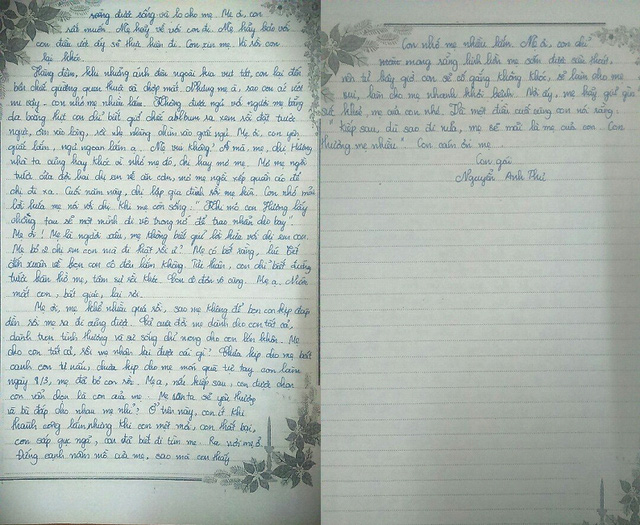 sáng được sống và lo cho mẹ. Mẹ ơi, con
rất muốn. Mẹ hãy về với con đi. Mẹ hãy bảo với
con điều ước ấy sẽ thực hiện đi. Con xin mẹ. Vì rồi con
lại khóc.
Hằng đêm, khi những ánh đèn ngoài kia vụt tắt, con lại đến
bên chiếc giường quen thuộc và chợp mắt. Nhưng mẹ à, sao con cứ ướt
mi cay. Con nhớ mẹ nhiều lắm. Không được ngủ với người mẹ bằng
da bằng thịt con chỉ biết giở chiếc album ra xem rồi đặt trước
ngực, ôm vào lòng, rồi nhẹ nhàng chìm vào giấc ngủ. Mẹ ơi, con yên
giấc lắm, ngủ ngoan lắm ạ. Mẹ vui không? Ờ mà, mẹ, chị Hương
nhà ta cũng hay khóc vì nhớ mẹ đó, chị hay mơ mẹ. Mơ mẹ ngồi
trước cửa đợi hai chị em về ăn cơm, mơ mẹ ngồi xếp quần áo để
chị đi xa. Cuối năm nay, chị lập gia đình rồi mẹ hỉ. Con nhớ mãi
lời hứa mẹ nói với chị khi mẹ còn sống: "Khi mô con Hương lấy
chồng, tau sẽ một mình đi vô trong nớ để trao nhẫn cho bay".
Mẹ ơi! Mẹ là người xấu, mẹ không biết giữ lời hứa với chị em con.
Mẹ bỏ 2 chị em con mà đi thật rồi ư? Mẹ có biết rằng, lúc Tết
đến xuân về bọn con cô đơn lắm không. Tủi thân, con chỉ biết đứng
trước bàn thờ mẹ, tâm sự rồi khóc. Con cô đơn vô cùng. Mẹ ạ. Nước
mắt con, bất giác, lại rơi.
Mẹ ơi, mẹ khổ nhiều quá rồi, sao mẹ không để bọn con kịp đáp
đền rồi mẹ ra đi cũng được. Cả cuộc đời mẹ dành cho con tất cả,
dành trọn tình thương và sự sống chỉ mong cho con lớn khôn. Mẹ
cho con tất cả, rồi mẹ nhận lại được cái gì? Chưa kịp cho mẹ bát
canh con tự nấu, chưa kịp cho mẹ món quà từ tay con làm
ngày 8/3, mẹ đã bỏ con rồi. Mẹ ạ, nếu kiếp sau, con được chọn
con vẫn chọn là con của mẹ. Mẹ con ta sẽ yêu thương
và bù đắp cho nhau mẹ nhỉ? Ở trên này, con ít khi
thành công lắm nhưng khi con mệt mỏi, con thất bại,
con sắp gục ngã, con đã biết đi tìm mẹ. Ra nơi mẹ ở.
Đứng cạnh nấm mồ của mẹ, sao mà con thấy
Con nhớ mẹ nhiều lắm. Mẹ ơi, con chỉ
mong sao linh hồn mẹ sớm được siêu thoát,
nên từ bây giờ con sẽ cố gắng không khóc, sẽ làm cho mẹ
vui, làm cho mẹ nhanh khỏi bệnh. Nơi ấy, mẹ hãy giữ gìn
sức khoẻ, mẹ của con nhé. Và một điều cuối cùng con nói rằng:
"Kiếp sau, dù sao đi nữa, mẹ sẽ mãi là mẹ của con. Con
thương mẹ nhiều". Con cảm ơn mẹ.
Con gái
Nguyễn Anh Thư